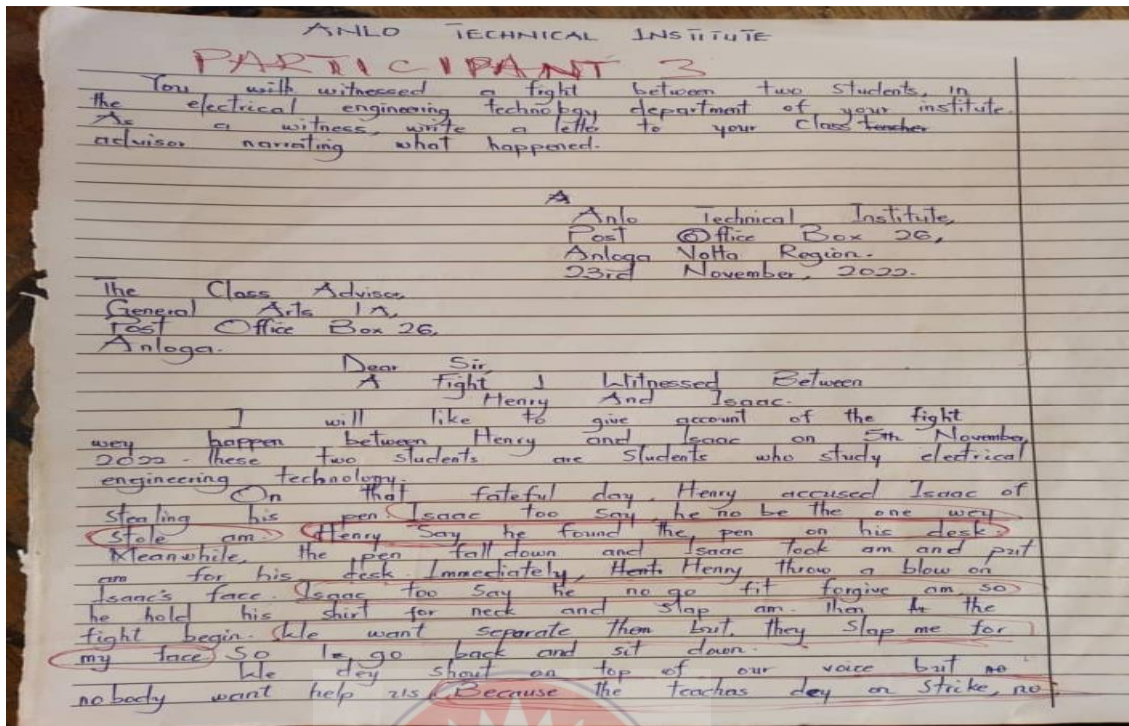 ANLO TECHNICAL INSTITUTE
PARTICIPANT 3
You with witnessed a fight between two students, in
the electrical engineering technology department of your institute.
As a witness, write a letter to your class teacher
advisor narrating what happened.
A
Anlo Technical Institute,
Post Office Box 26,
Anloga Volta Region.
23rd November, 2022.
The Class Advisor,
General Arts 1A,
Post Office Box 26,
Anloga.
Dear Sir,
A Fight I Witnessed Between
Henry And Isaac.
I will like to give account of the fight
wey happen between Henry and Isaac on 5th November,
2022. These two students are students who study electrical
engineering technology.
On that fateful day, Henry accused Isaac of
stealing his pen. Isaac too say, he no be the one wey
stole am. Henry say he found the pen on his desk.
Meanwhile, the pen fall down and Isaac took am and put
am for his desk. Immediately, Hent. Henry throw a blow on
Isaac's face. Isaac too say he no go fit forgive am so
he hold his shirt for neck and slap am. Then the
fight begin. We want separate them but, they slap me for
my face So I go back and sit down.
We dey shout on top of our voice but no
nobody want help us. Because the teachas dey on strike, no